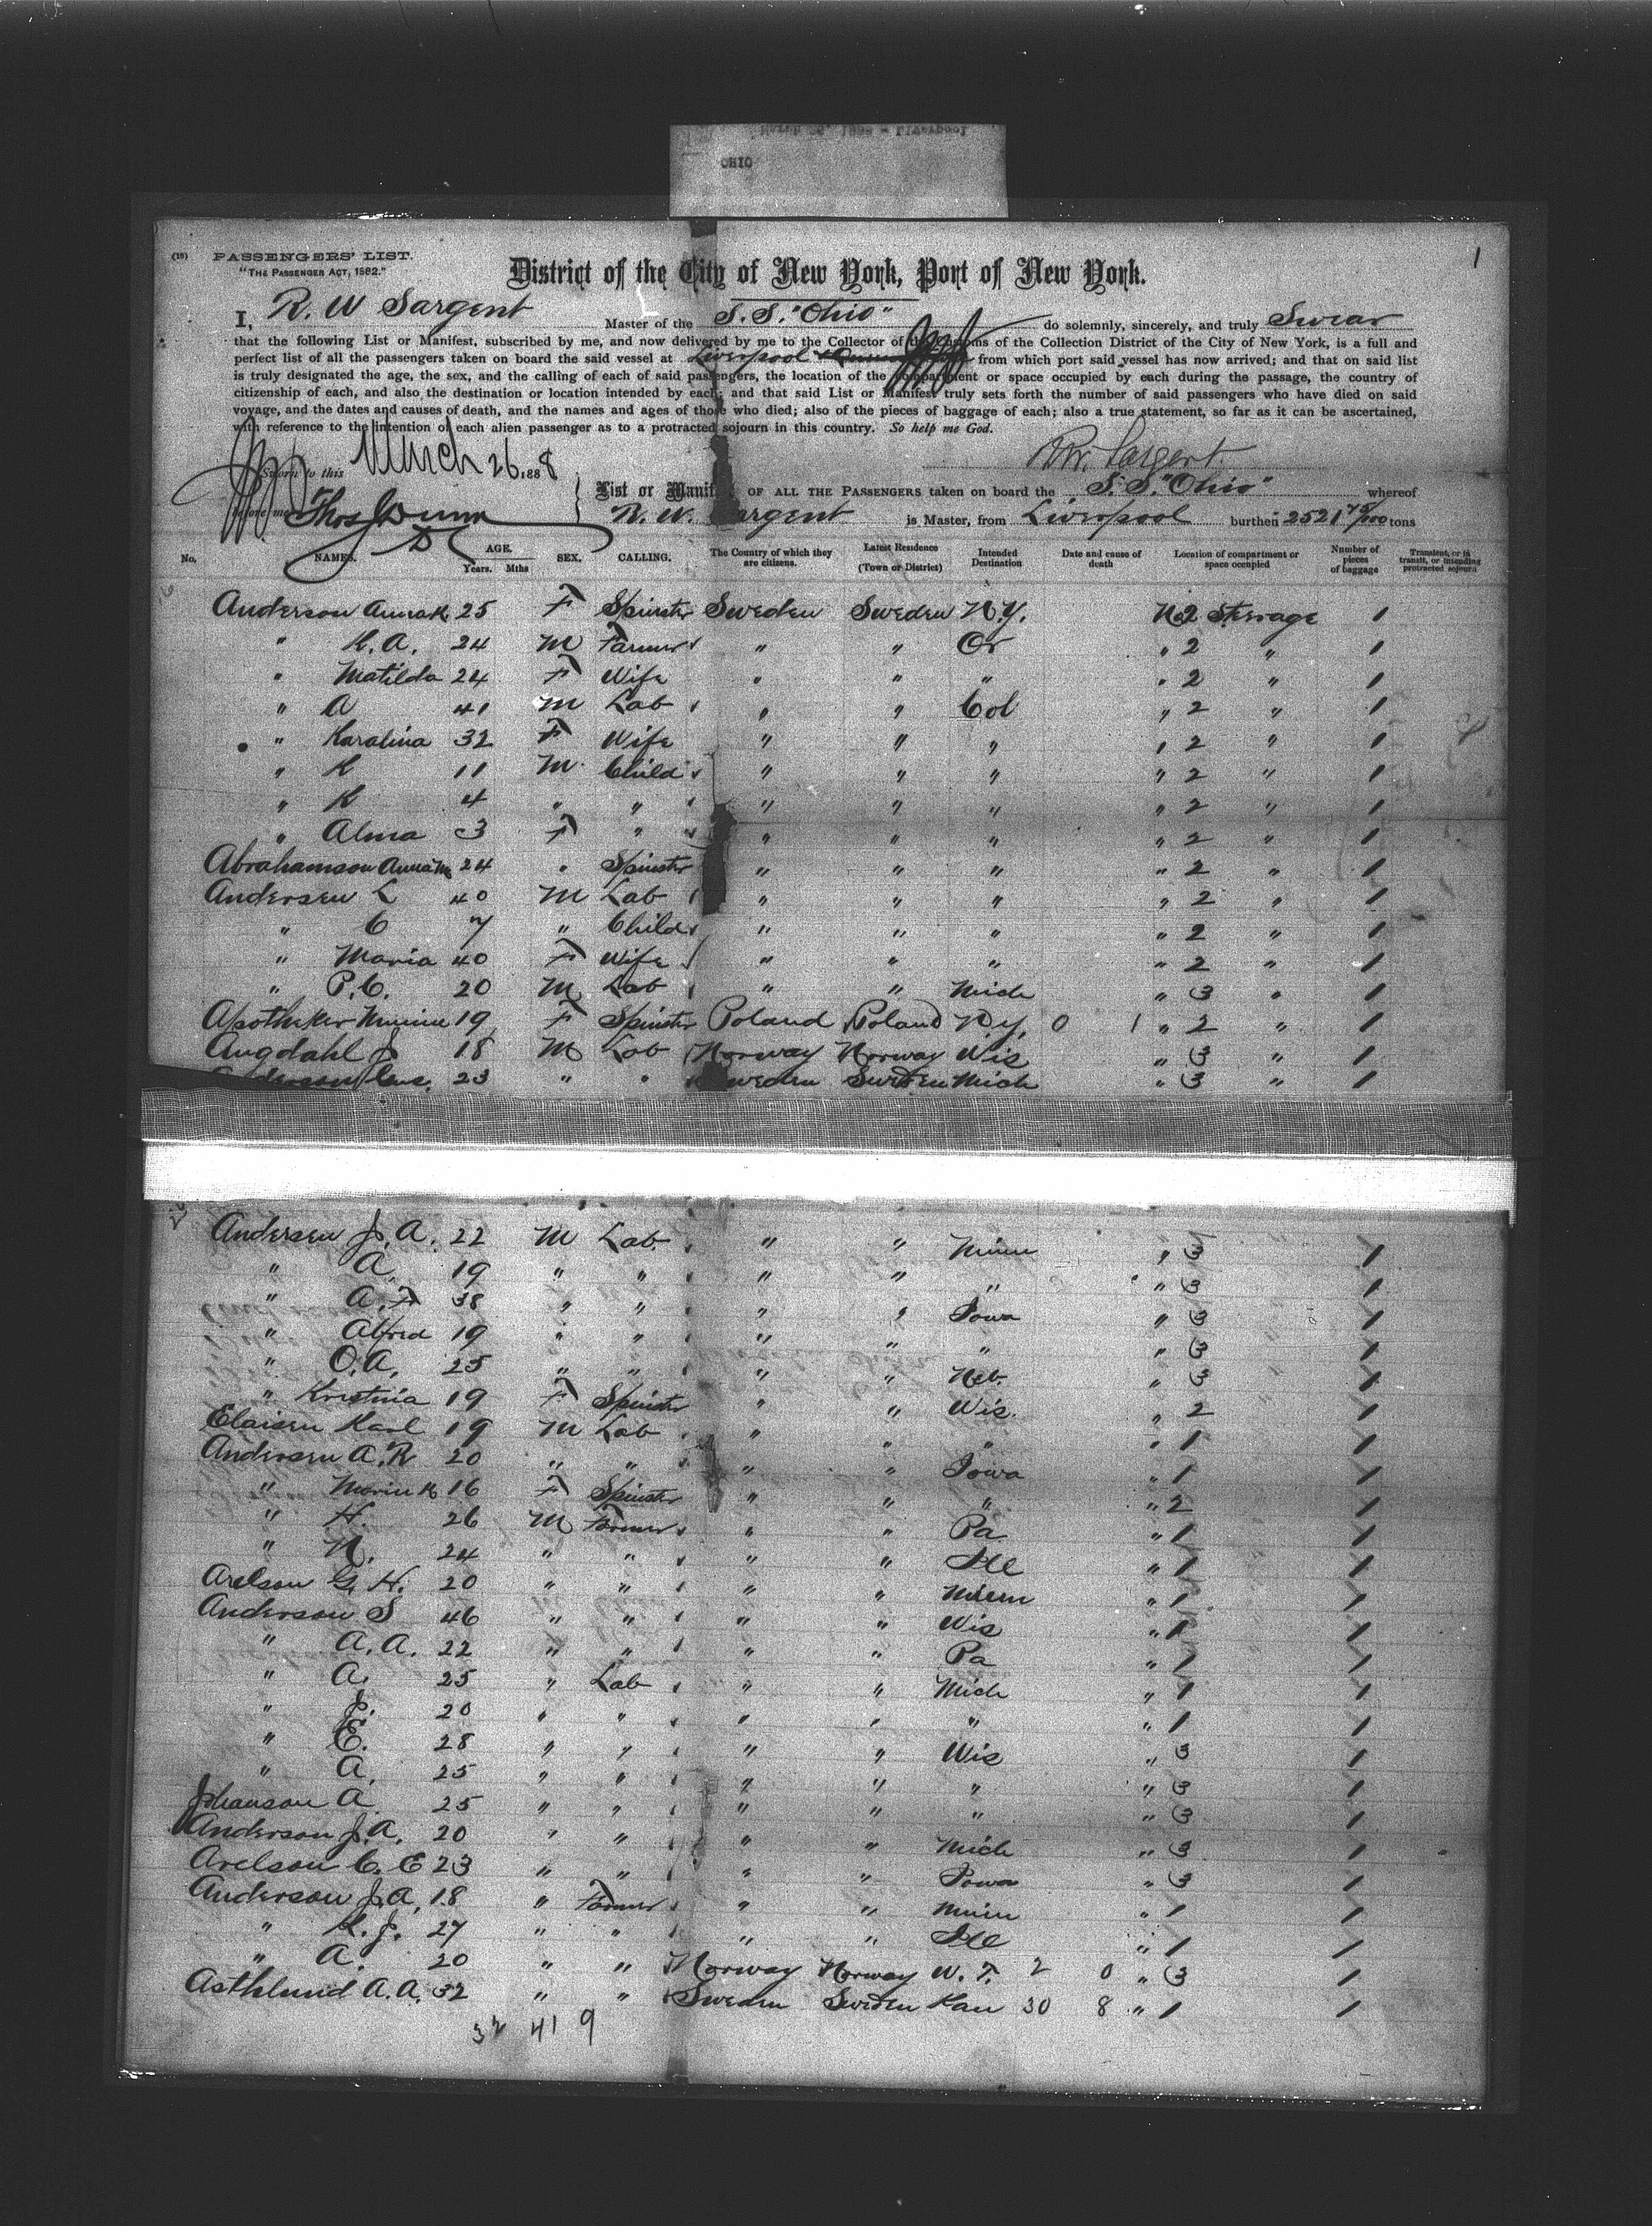 OHIO
1
(18) PASSENGERS' LIST.
"THE PASSENGER ACT, 1882."
District of the City of New York, Port of New York.
I, R. W Sargent Master of the S. S. "Ohio" do solemnly, sincerely, and truly Swear
that the following List or Manifest, subscribed by me, and now delivered by me to the Collector of the Customs of the Collection District of the City of New York, is a full and
perfect list of all the passengers taken on board the said vessel at Liverpool from which port said vessel has now arrived; and that on said list
is truly designated the age, the sex, and the calling of each of said passengers, the location of the compartment or space occupied by each during the passage, the country of
citizenship of each, and also the destination or location intended by each; and that said List or Manifest truly sets forth the number of said passengers who have died on said
voyage, and the dates and causes of death, and the names and ages of those who died; also of the pieces of baggage of each; also a true statement, so far as it can be ascertained,
with reference to the intention of each alien passenger as to a protracted sojourn in this country. So help me God.
Sworn to this March 26, 1888 R. W. Sargent
before me Thos Dunn
List or Manifest OF ALL THE PASSENGERS taken on board the S. S. "Ohio" whereof
R. W. Sargent is Master, from Liverpool burthen 2521 75/100 tons
No. NAMES. AGE. Years. Mths SEX. CALLING. The Country of which they are citizens. Latest Residence (Town or District) Intended Destination Date and cause of death Location of compartment or space occupied Number of pieces of baggage Transient, or in transit, or intending protracted sojourn
Anderson Anna K 25 F Spinster Sweden Sweden N.Y. No 2 Steerage 1
" K. A. 24 M Farmer " " Or " 2 " 1
" Matilda 24 F Wife " " " " 2 " 1
" A 41 M Lab " " Col " 2 " 1
" Karalina 32 F Wife " " " " 2 " 1
" K 11 M Child " " " " 2 " 1
" K 4 " " " " " " 2 " 1
" Alma 3 F " " " " " 2 " 1
Abrahamson Anna M 24 " Spinster " " " " 2 " 1
Andersen L 40 M Lab " " " " 2 " 1
" C 7 " Child " " " " 2 " 1
" Maria 40 F Wife " " " " 2 " 1
" P. C. 20 M Lab " " Mich " 3 " 1
Apotheker Minnie 19 F Spinster Poland Poland N.Y. 0 1 " 2 " 1
Augdahl J 18 M Lab Norway Norway Wis " 3 " 1
Anderson Gus. 23 " " Sweden Sweden Mich " 3 " 1
Andersen J. A. 22 M Lab " " Minn " 3 1
" A. 19 " " " " " " 3 1
" A. F 38 " " " " Iowa " 3 1
" Alfred 19 " " " " " " 3 1
" O. A. 25 " " " " Neb. " 3 1
" Kristina 19 F Spinster " " Wis. " 2 1
Elaisen Karl 19 M Lab " " " " 1 1
Andersen A. R 20 " " " " Iowa " 1 1
" Marin K 16 F Spinster " " " " 2 1
" H. 26 M Farmer " " Pa " 1 1
" N. 24 " " " " Ill " 1 1
Arelson G. H. 20 " " " " Minn " 1 1
Anderson S 46 " " " " Wis " 1 1
" A. A. 22 " " " " Pa " 1 1
" A. 25 " Lab " " Mich " 1 1
" J. 20 " " " " " " 1 1
" E. 28 " " " " Wis " 3 1
" A. 25 " " " " " " 3 1
Johanson A 25 " " " " " " 3 1
Anderson J. A. 20 " " " " Mich " 3 1
Arelson C. E 23 " " " " Iowa " 3 1
Anderson J. A. 18 " Farmer " " Minn " 1 1
" K. J. 27 " " " " Ill " 1 1
" A. 20 " " Norway Norway W. T. 2 0 " 3 1
Asthlund A. A. 32 " " Sweden Sweden Kan 30 8 " 1 1
32 41 9